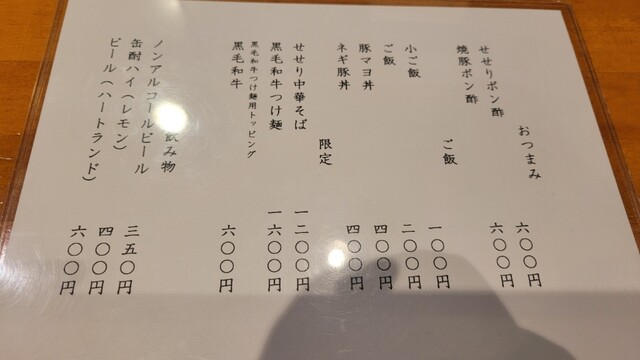 おつまみ
せせりポン酢 六〇〇円
焼豚ポン酢 六〇〇円
ご飯
小ご飯 一〇〇円
ご飯 二〇〇円
豚マヨ丼 四〇〇円
ネギ豚丼 四〇〇円
限定
せせり中華そば 一二〇〇円
黒毛和牛つけ麺 一六〇〇円
黒毛和牛つけ麺用トッピング
黒毛和牛 六〇〇円
飲み物
ノンアルコールビール 三五〇円
缶酎ハイ（レモン） 四〇〇円
ビール（ハートランド） 六〇〇円